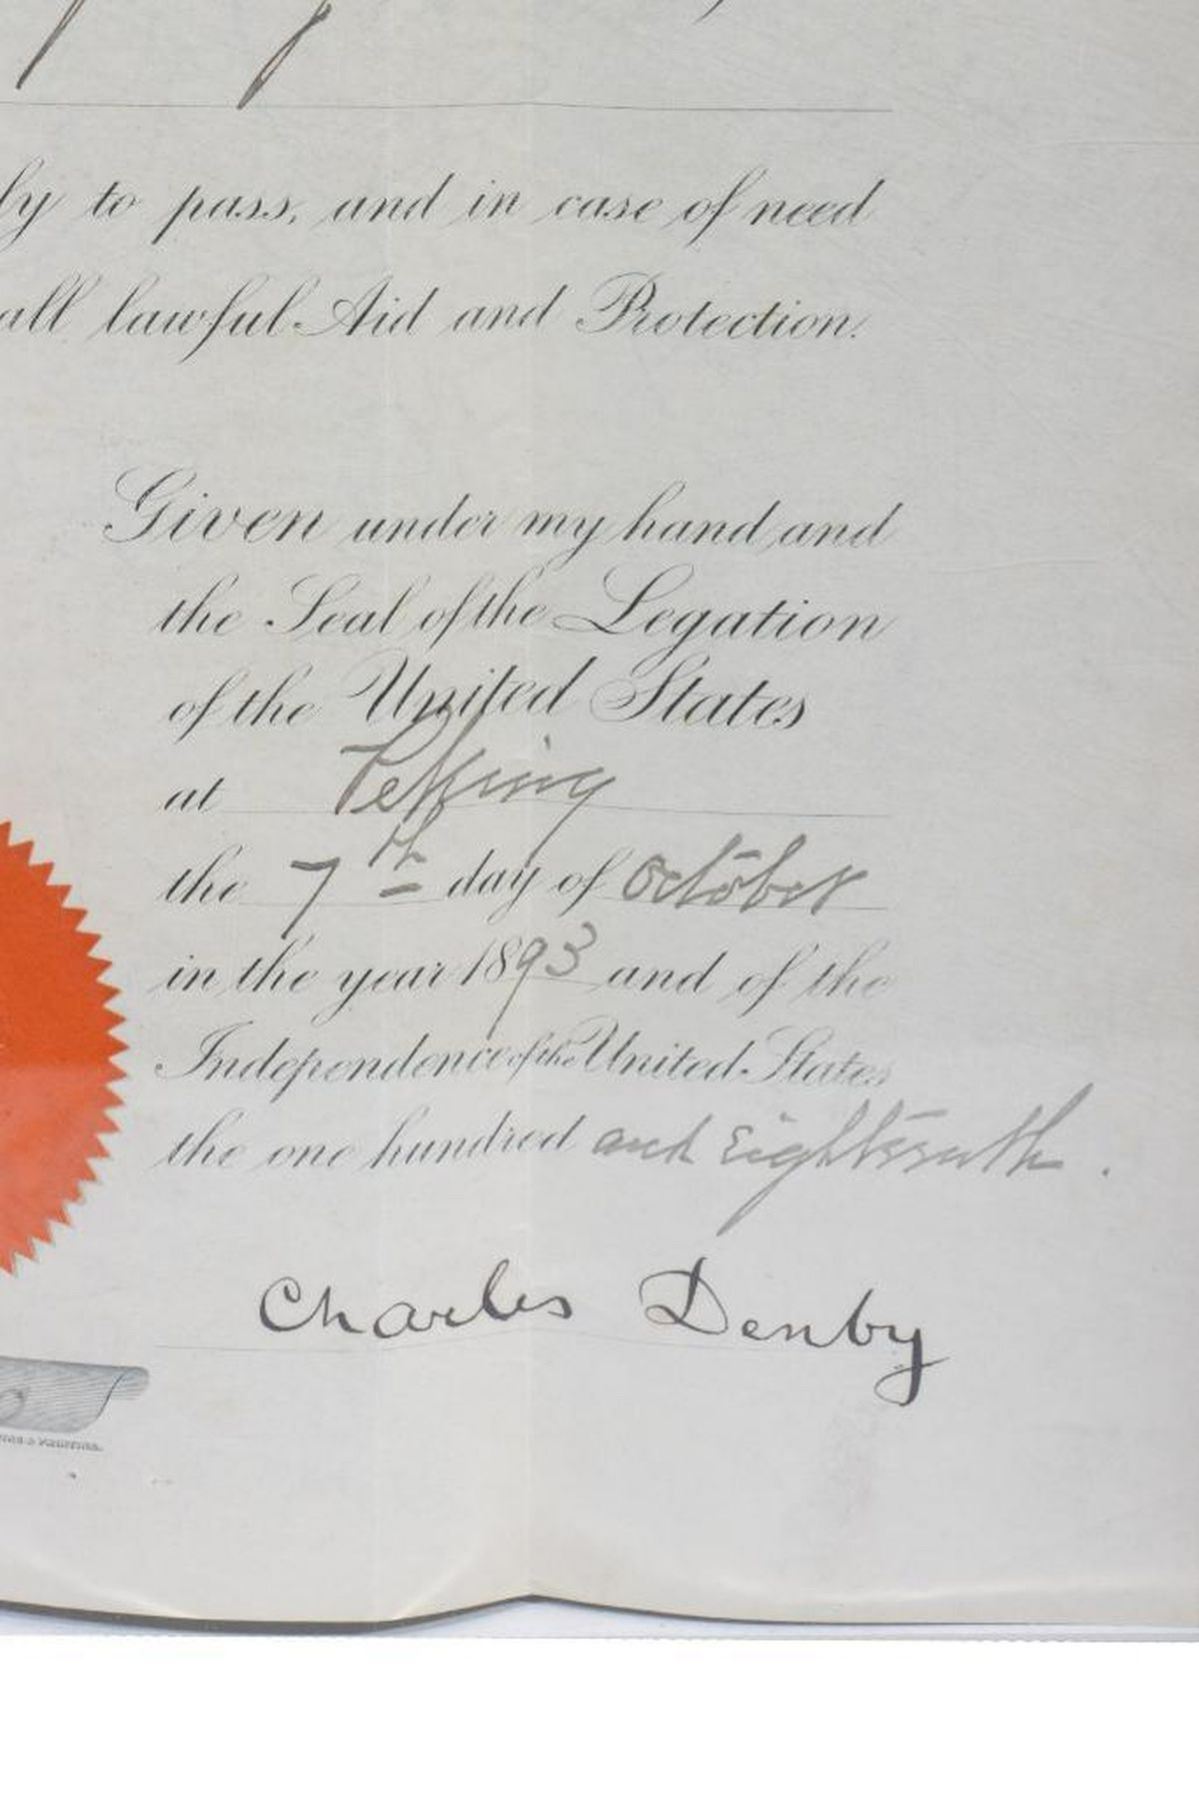 ly to pass, and in case of need
all lawful Aid and Protection.
Given under my hand and
the Seal of the Legation
of the United States
at Peking
the 7th day of October
in the year 1893 and of the
Independence of the United States
the one hundred and Eighteenth.
Charles Denby